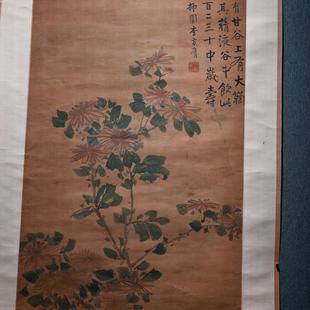 有甘谷上有大菊
其液谷中飲此
百二三十中歲壽
柳園李